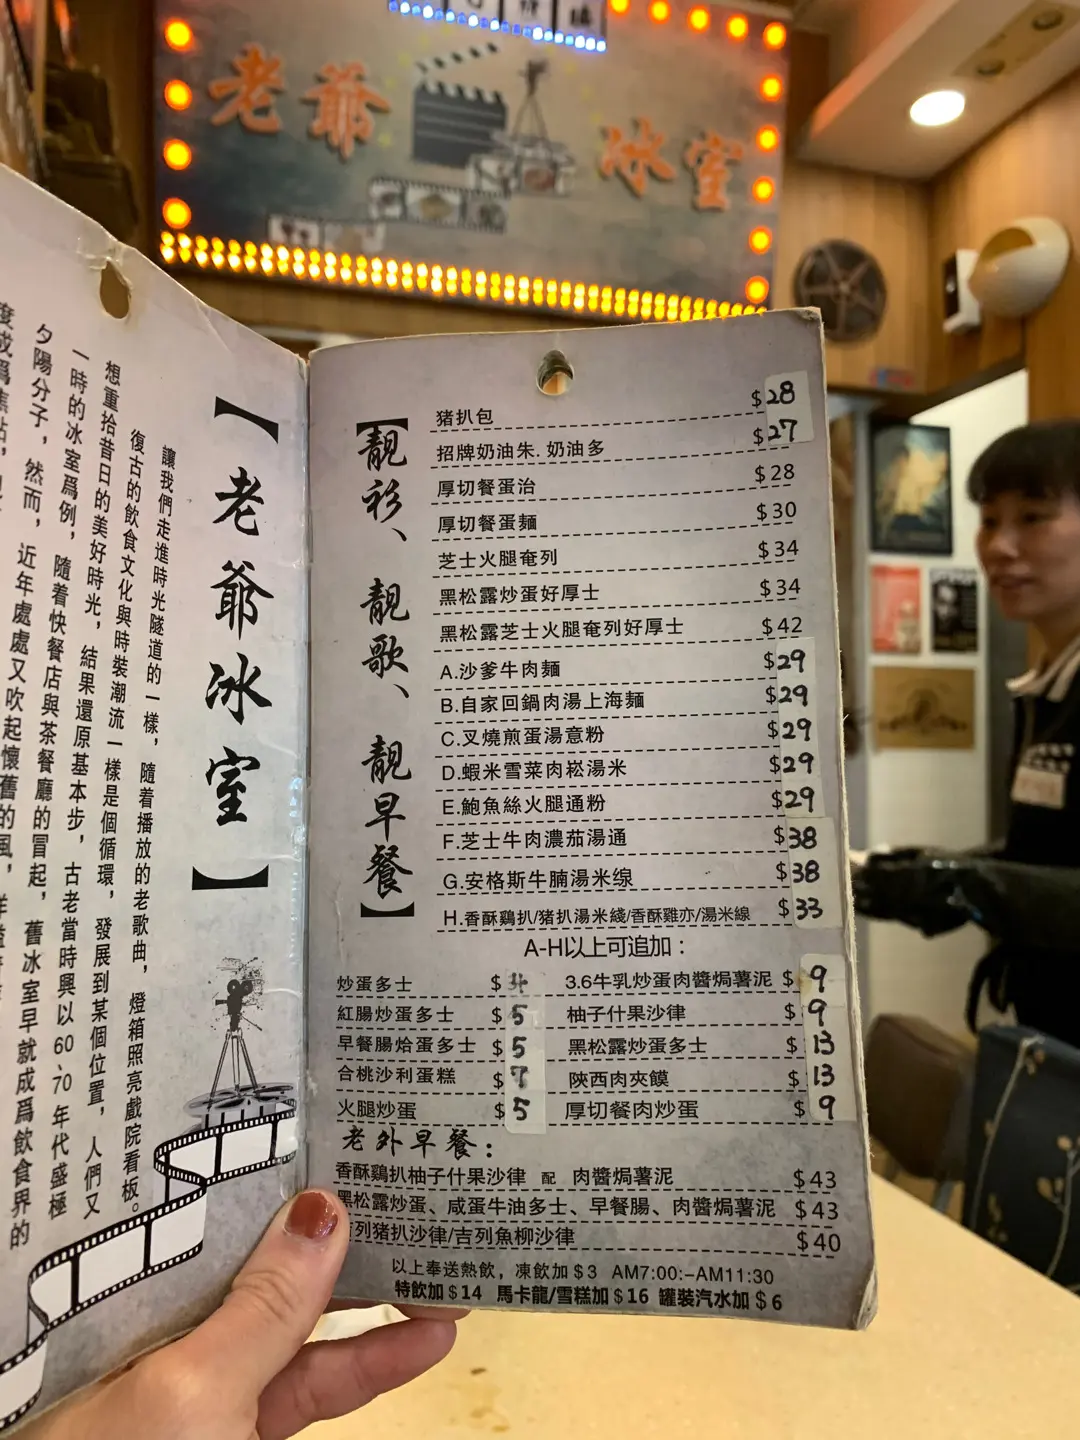 老爺 冰室
【老爺冰室】
讓我們走進時光隧道的一樣，隨着播放的老歌曲，燈箱照亮戲院看板。
復古的飲食文化與時裝潮流一樣是個循環，發展到某個位置，人們又
想重拾昔日的美好時光，結果還原基本步，古老當時興以60、70年代盛極
一時的冰室爲例，隨着快餐店與茶餐廳的冒起，舊冰室早就成爲飲食界的
夕陽分子，然而，近年處處又吹起懷舊的風，
【靚衫、靚歌、靚早餐】
猪扒包 $28
招牌奶油朱.奶油多 $27
厚切餐蛋治 $28
厚切餐蛋麵 $30
芝士火腿奄列 $34
黑松露炒蛋好厚士 $34
黑松露芝士火腿奄列好厚士 $42
A.沙爹牛肉麵 $29
B.自家回鍋肉湯上海麵 $29
C.叉燒煎蛋湯意粉 $29
D.蝦米雪菜肉崧湯米 $29
E.鮑魚絲火腿通粉 $29
F.芝士牛肉濃茄湯通 $38
G.安格斯牛腩湯米缐 $38
H.香酥鷄扒/猪扒湯米綫/香酥雞亦/湯米線 $33
A-H以上可追加：
炒蛋多士 $ 3.6牛乳炒蛋肉醬焗薯泥 $9
紅腸炒蛋多士 $5 柚子什果沙律 $9
早餐腸烚蛋多士 $5 黑松露炒蛋多士 $13
合桃沙利蛋糕 $7 陝西肉夾饃 $13
火腿炒蛋 $5 厚切餐肉炒蛋 $9
老外早餐：
香酥鷄扒柚子什果沙律 配 肉醬焗薯泥 $43
黑松露炒蛋、咸蛋牛油多士、早餐腸、肉醬焗薯泥 $43
列猪扒沙律/吉列魚柳沙律 $40
以上奉送熱飲，凍飲加$3 AM7:00:-AM11:30
特飲加$14 馬卡龍/雪糕加$16 罐裝汽水加$6